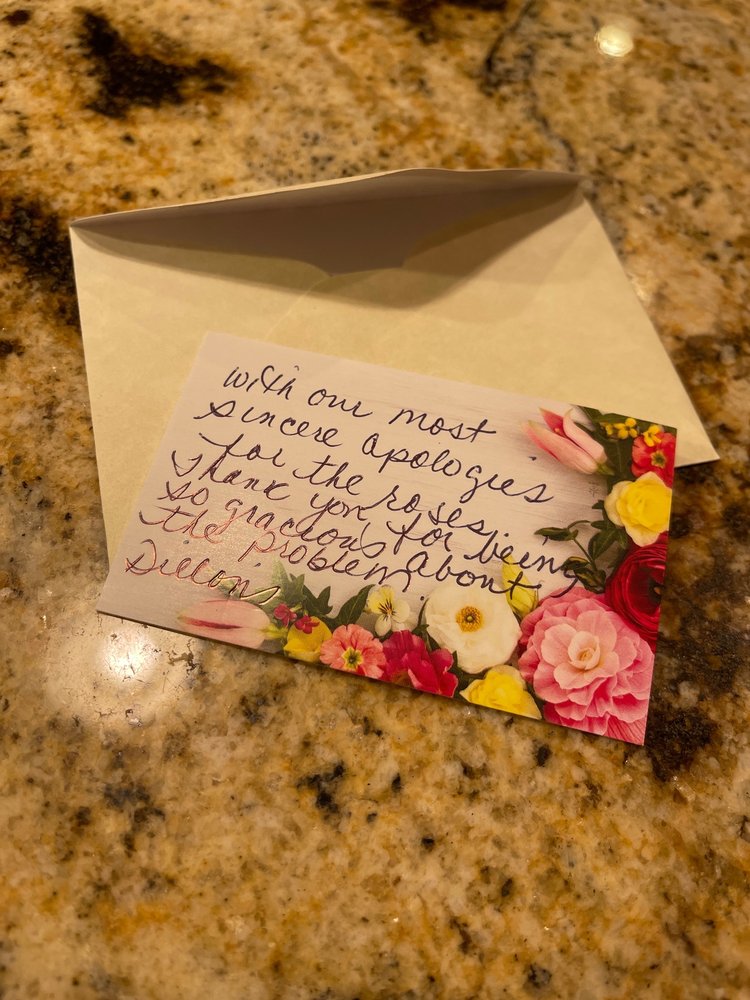 with our most
sincere apologies
for the roses.
Thank you for being
so gracious about
the problem.
Dillon's